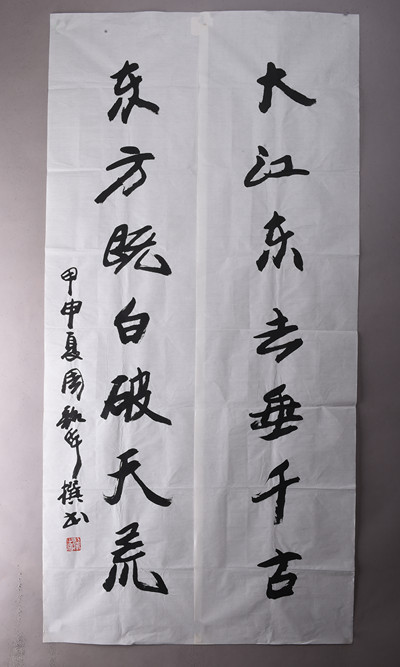 大江东去垂千古
东方既白破天荒
甲申夏周魏峙撰书